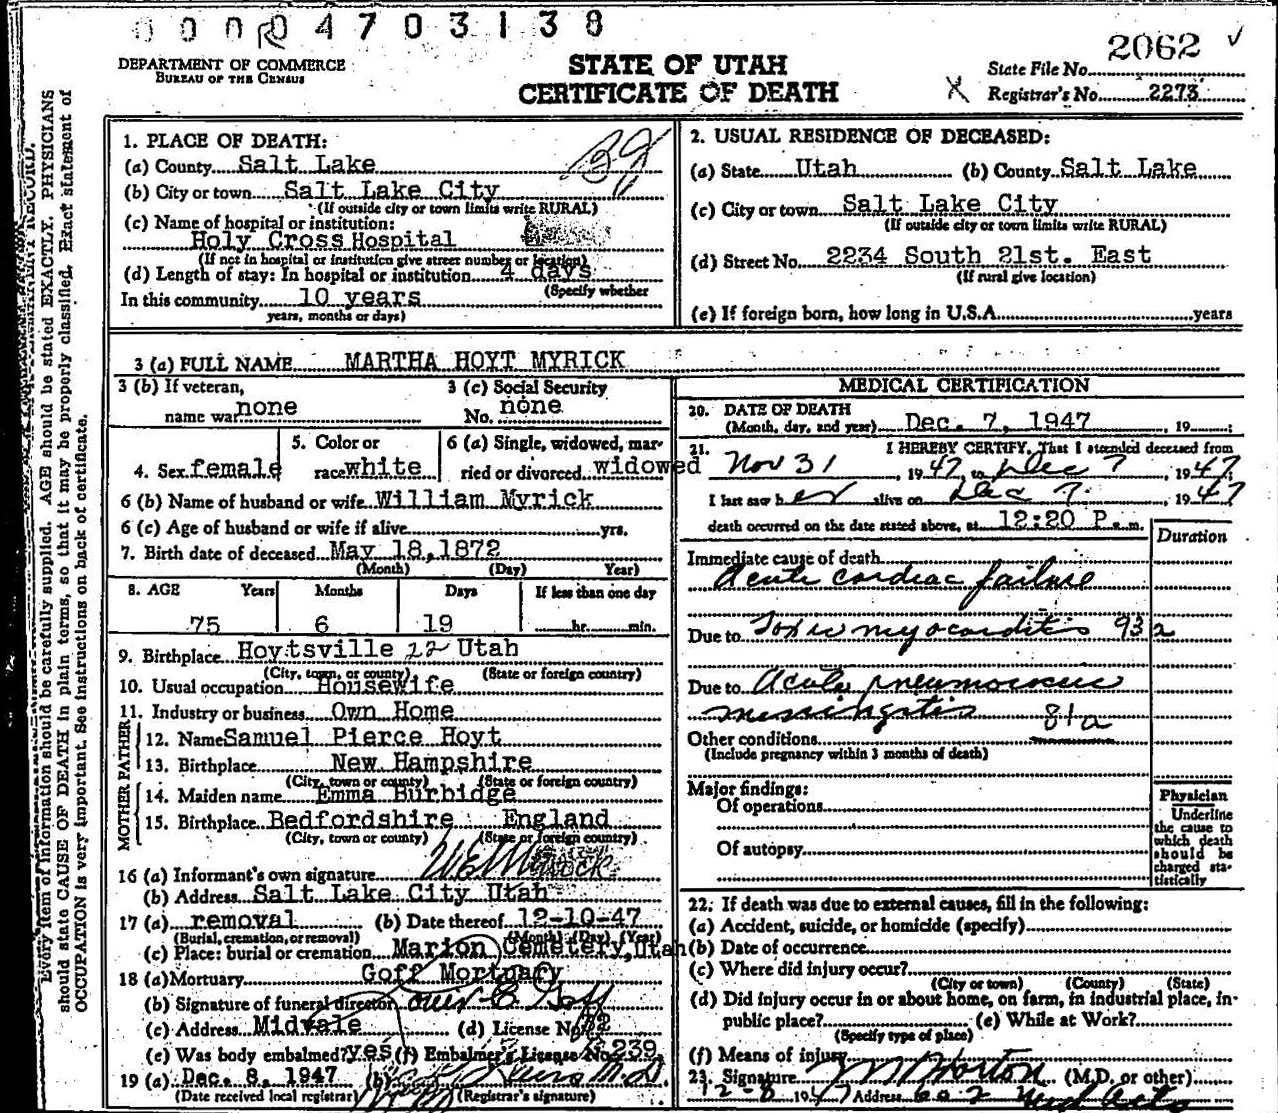 0000 4 7 0 3 1 3 8
2062 ✓
DEPARTMENT OF COMMERCE
BUREAU OF THE CENSUS
STATE OF UTAH
CERTIFICATE OF DEATH
State File No.
X Registrar's No. 2273
Every item of information should be carefully supplied. AGE should be stated EXACTLY. PHYSICIANS
should state CAUSE OF DEATH in plain terms, so that it may be properly classified. Exact statement of
OCCUPATION is very important. See instructions on back of certificate.
1. PLACE OF DEATH:
(a) County Salt Lake
(b) City or town Salt Lake City
(If outside city or town limits write RURAL)
(c) Name of hospital or institution:
Holy Cross Hospital
(If not in hospital or institution give street number or location)
(d) Length of stay: In hospital or institution 4 days
(Specify whether
In this community 10 years
years, months or days)
2. USUAL RESIDENCE OF DECEASED:
(a) State Utah (b) County Salt Lake
(c) City or town Salt Lake City
(If outside city or town limits write RURAL)
(d) Street No. 2234 South 21st. East
(If rural give location)
(e) If foreign born, how long in U.S.A. years
3 (a) FULL NAME MARTHA HOYT MYRICK
3 (b) If veteran,
name war none
3 (c) Social Security
No. none
4. Sex female
5. Color or
race white
6 (a) Single, widowed, mar-
ried or divorced widowed
6 (b) Name of husband or wife William Myrick
6 (c) Age of husband or wife if alive yrs.
7. Birth date of deceased May 18, 1872
(Month) (Day) Year)
8. AGE Years Months Days If less than one day
75 6 19 hr. min.
9. Birthplace Hoytsville 22 Utah
(City, town, or county) (State or foreign country)
10. Usual occupation Housewife
11. Industry or business Own Home
FATHER
12. Name Samuel Pierce Hoyt
13. Birthplace New Hampshire
(City, town or county) (State or foreign country)
MOTHER
14. Maiden name Emma Burbidge
15. Birthplace Bedfordshire England
(City, town or county) (State or foreign country)
16 (a) Informant's own signature
(b) Address Salt Lake City Utah
17 (a) removal (b) Date thereof 12-10-47
(Burial, cremation, or removal) (Month) (Day) (Year)
(c) Place: burial or cremation Marion Cemetery, Utah
18 (a) Mortuary Goff Mortuary
(b) Signature of funeral director Goff
(c) Address Midvale (d) License No.
(e) Was body embalmed? yes (f) Embalmer's License No. 239
19 (a) Dec. 8, 1947 (b)
(Date received local registrar) (Registrar's signature)
MEDICAL CERTIFICATION
20. DATE OF DEATH
(Month, day, and year) Dec. 7, 1947, 19
21. I HEREBY CERTIFY, That I attended deceased from
Nov 31, 1947, to Dec 7, 1947,
I last saw her alive on Dec 7, 1947
death occurred on the date stated above, at 12:20 P.m.
Duration
Immediate cause of death
Acute cardiac failure
Due to Toxic myocarditis 93a
Due to Acute pneumococcus
meningitis 81a
Other conditions
(Include pregnancy within 3 months of death)
Major findings:
Of operations
Of autopsy
Physician
Underline
the cause to
which death
should be
charged sta-
tistically
22. If death was due to external causes, fill in the following:
(a) Accident, suicide, or homicide (specify)
(b) Date of occurrence
(c) Where did injury occur?
(City or town) (County) (State)
(d) Did injury occur in or about home, on farm, in industrial place, in-
public place? (e) While at Work?
(Specify type of place)
(f) Means of injury
23. Signature (M.D. or other)
12-8 1947 Address 602 Med Arts